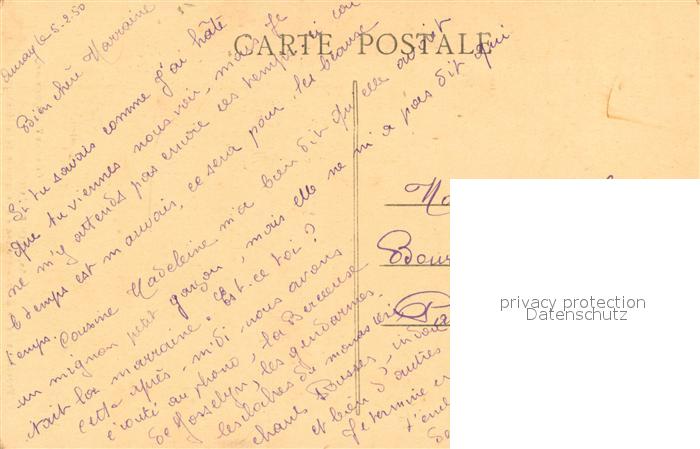 CARTE POSTALE
Aunay le 5.2.50
Bien chère Marraine
Si tu savais comme j'ai hâte
que tu viennes nous voir, mais Je
ne m'y attends pas encore ces temps ici car
le temps est mauvais, ce sera pour les beaux
temps. Cousine Madeleine m'a bien dit qu'elle avait
un mignon petit garçon, mais elle ne m'a pas dit qui
était la marraine. Est-ce toi?
cette après-midi nous avons
écouté au phono, la Berceuse
de Jocelyn, les gendarmes,
les cloches du monastère
chants Russes
et bien d'autres
Je termine en
privacy protection
Datenschutz